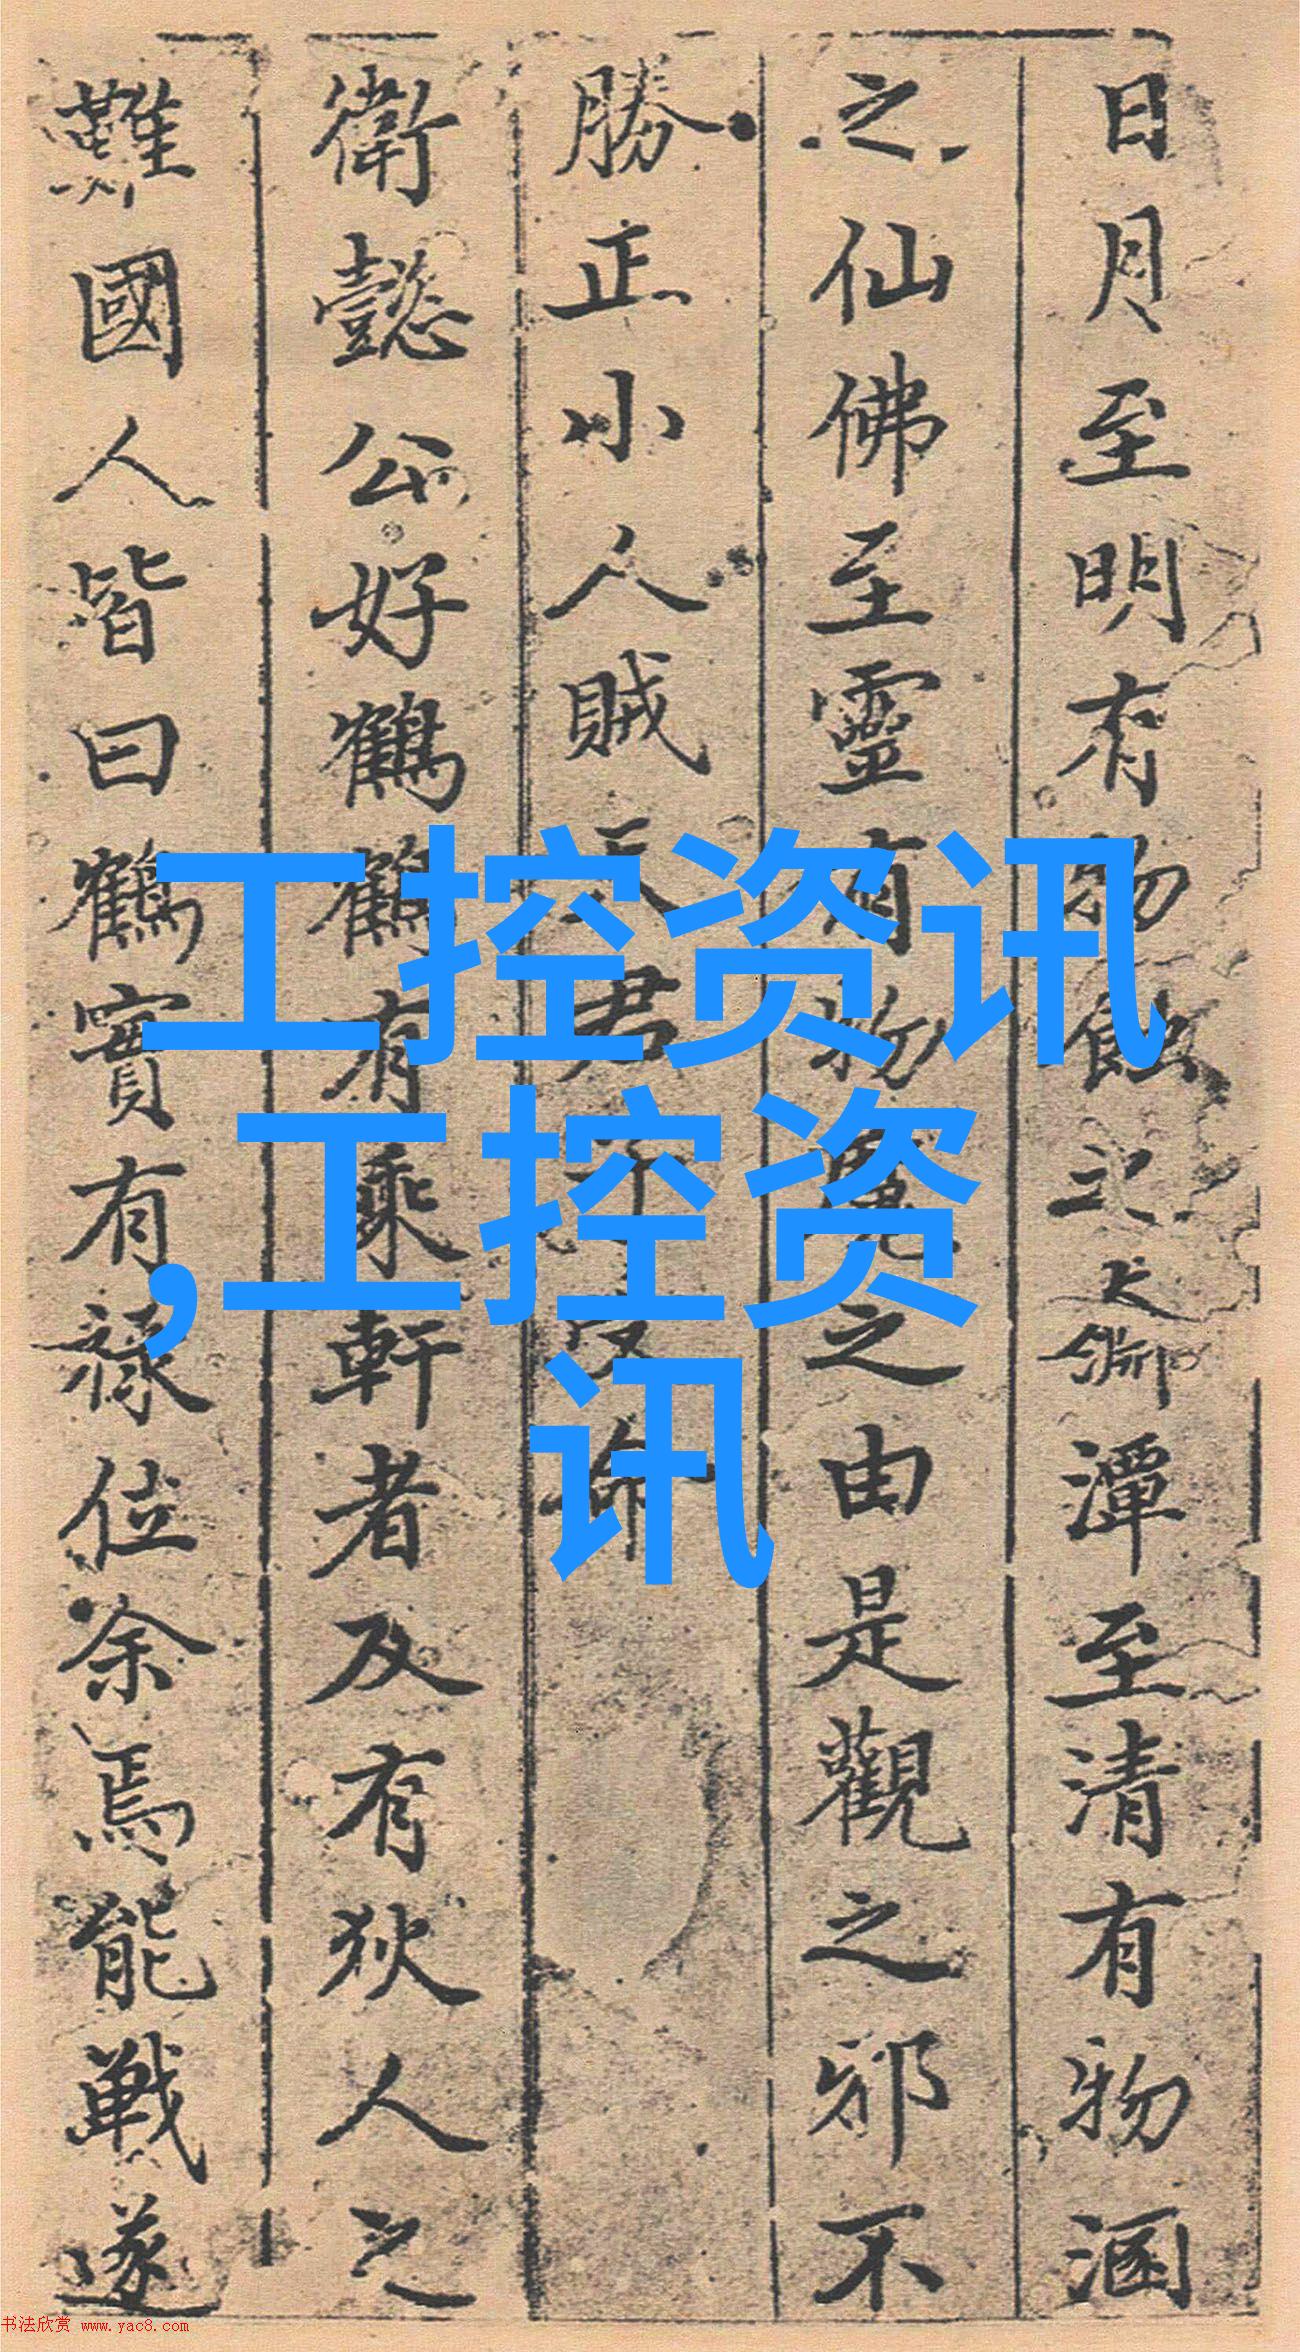 日月至明有物蝕之大淵潭至清有物涵
之仙佛至靈有物魔之由是觀之邪不
勝正小人賊正君子安命
衛懿公好鶴鶴有乘軒者及有狄人之
難國人皆曰鶴實有祿位余焉能戰遂
工控资讯
,工控资
讯
书法欣赏 www.yac8.com